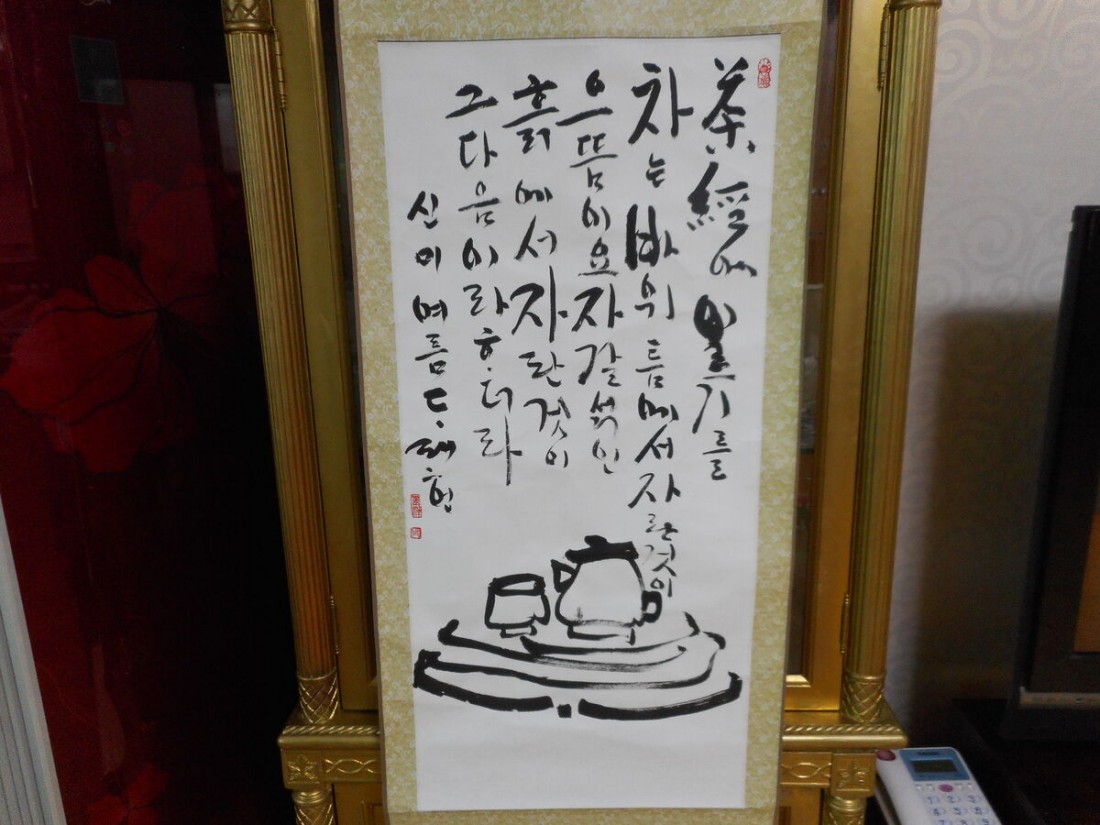 茶經에 이르기를
차는바위틈에서자란것이
으뜸이요자갈섞인
흙에서자란것이
그다음이라ᄒᆞ더라
여름